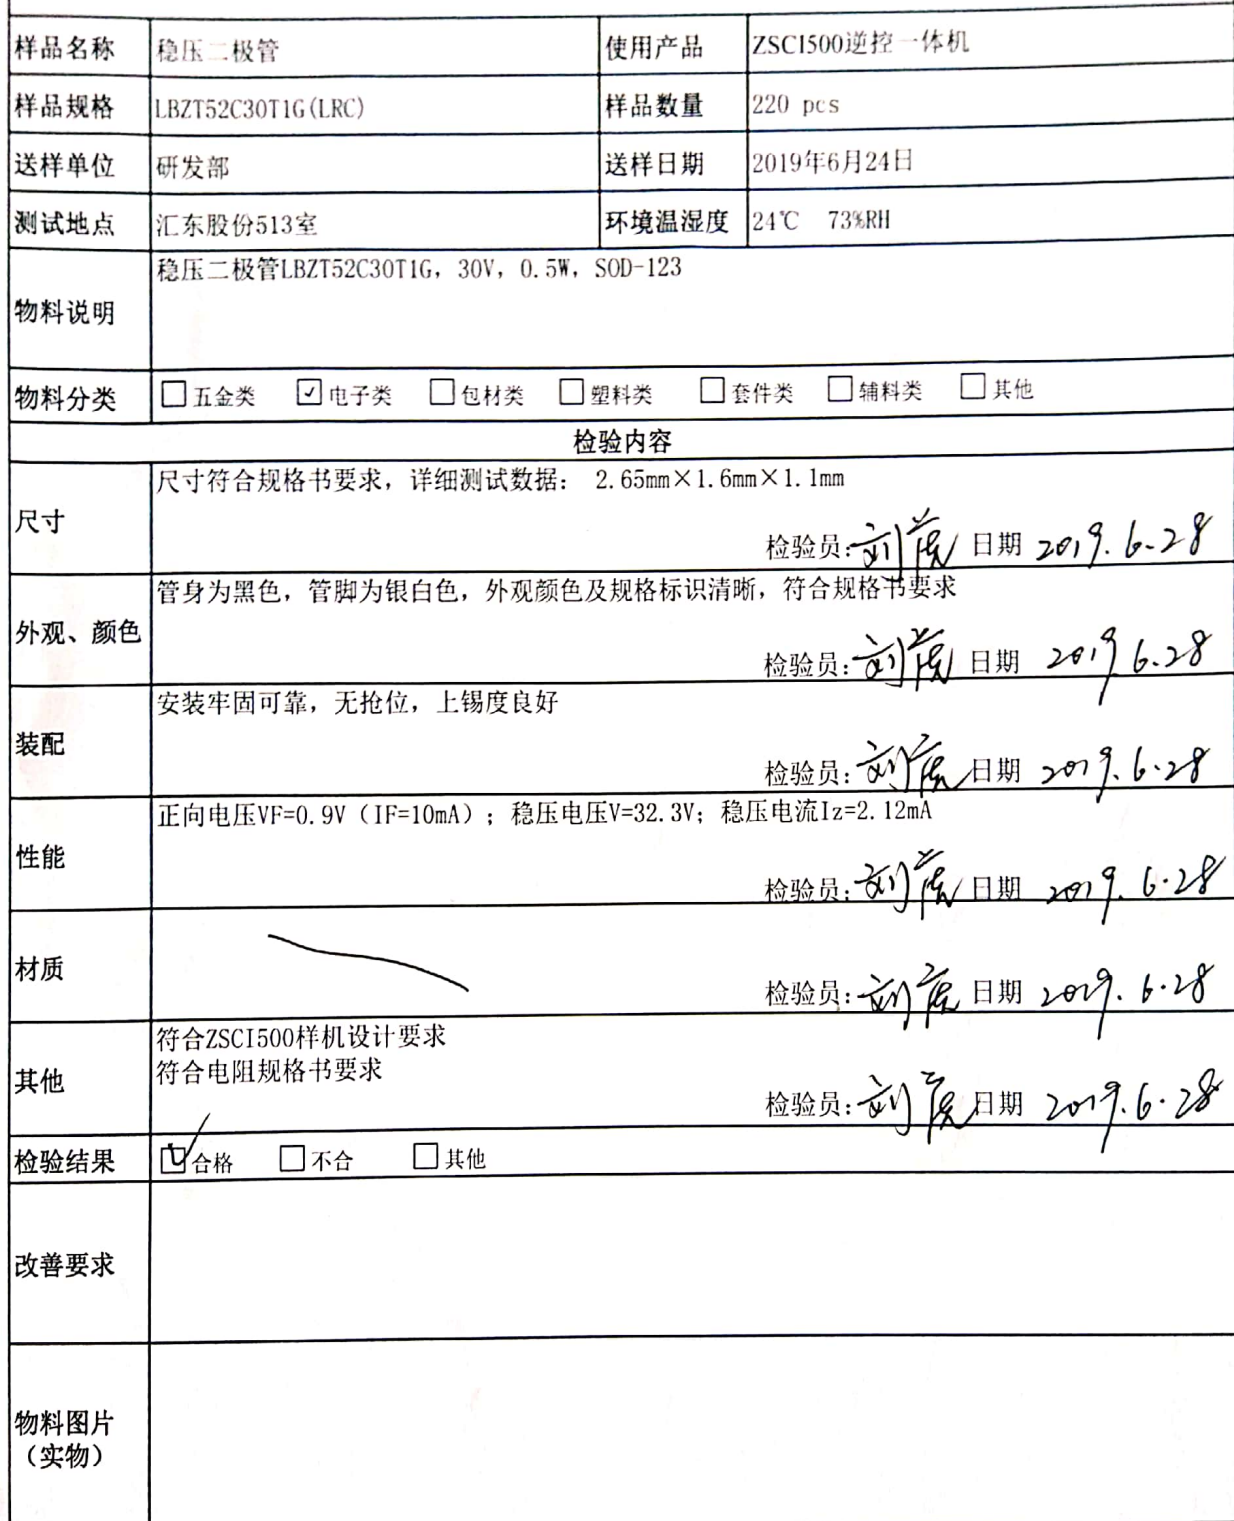 样品名称 稳压二极管 使用产品 ZSCI500逆控一体机
样品规格 LBZT52C30T1G(LRC) 样品数量 220 pcs
送样单位 研发部 送样日期 2019年6月24日
测试地点 汇东股份513室 环境温湿度 24℃ 73%RH
物料说明 稳压二极管LBZT52C30T1G，30V，0.5W，SOD-123
物料分类 □五金类 ☑电子类 □包材类 □塑料类 □套件类 □辅料类 □其他
检验内容
尺寸 尺寸符合规格书要求，详细测试数据： 2.65mm×1.6mm×1.1mm
检验员: 刘 日期 2019.6.28
外观、颜色 管身为黑色，管脚为银白色，外观颜色及规格标识清晰，符合规格书要求
检验员: 刘 日期 2019.6.28
装配 安装牢固可靠，无抢位，上锡度良好
检验员: 刘 日期 2019.6.28
性能 正向电压VF=0.9V（IF=10mA）；稳压电压V=32.3V；稳压电流Iz=2.12mA
检验员: 刘 日期 2019.6.28
材质
检验员: 刘 日期 2019.6.28
其他 符合ZSCI500样机设计要求
符合电阻规格书要求
检验员: 刘 日期 2019.6.28
检验结果 ☑合格 □不合 □其他
改善要求
物料图片
（实物）